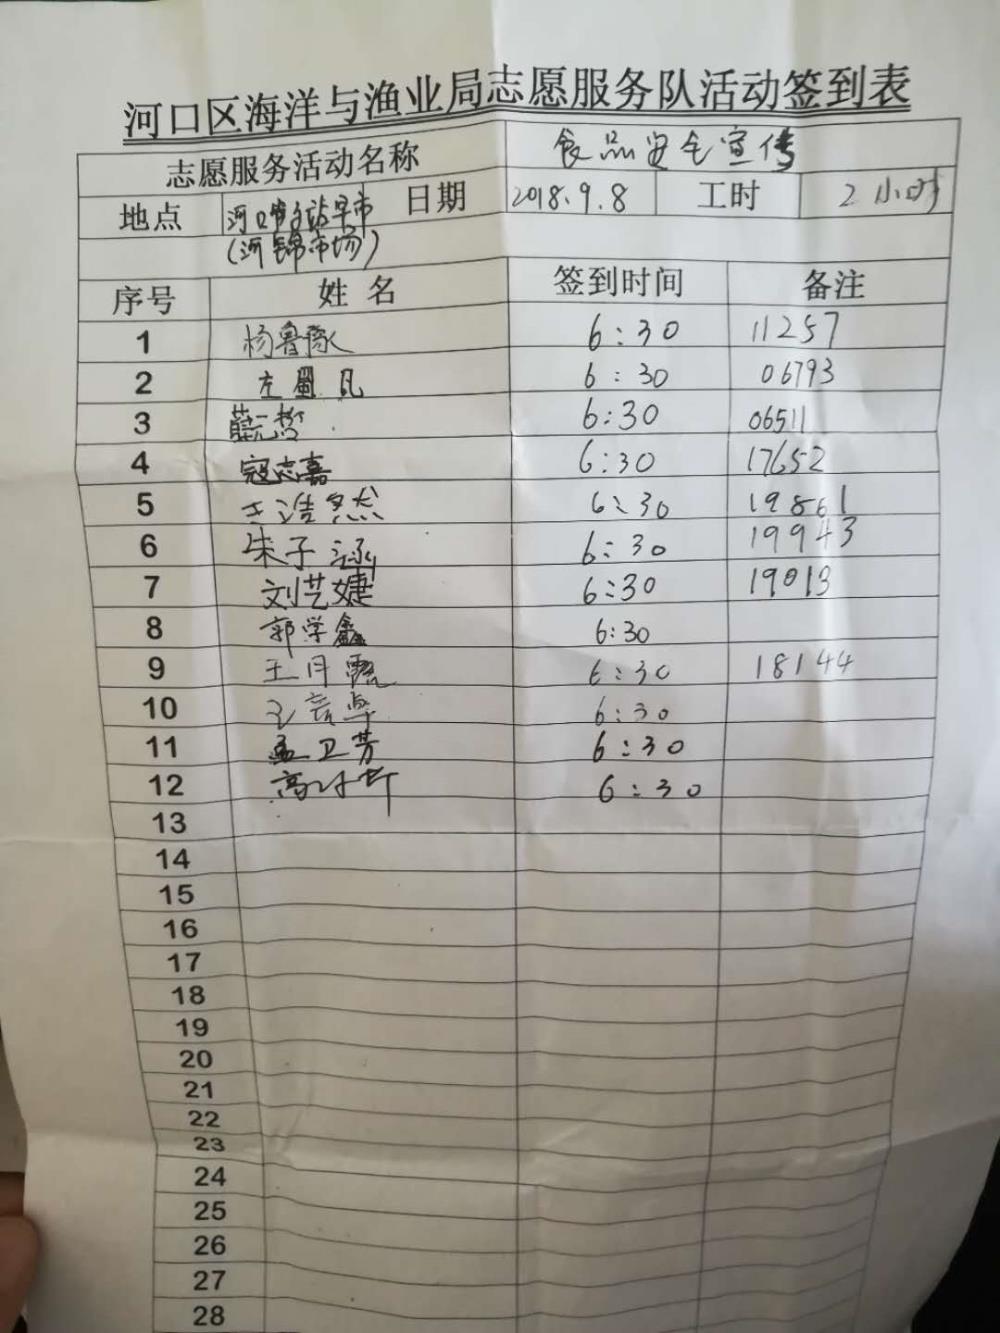 河口区海洋与渔业局志愿服务队活动签到表
志愿服务活动名称 食品安全宣传
地点 河口 站早市 日期 2018.9.8 工时 2小时
(河锦市场)
序号 姓名 签到时间 备注
1 杨鲁豫 6:30 11257
2 左 凡 6:30 06793
3 薛元哲 6:30 06511
4 寇志嘉 6:30 17652
5 王浩然 6:30 19861
6 朱子涵 6:30 19943
7 刘艺婕 6:30 19013
8 郭学鑫 6:30
9 王月霞 6:30 18144
10 王 6:30
11 孟卫芳 6:30
12 高 6:30
13
14
15
16
17
18
19
20
21
22
23
24
25
26
27
28